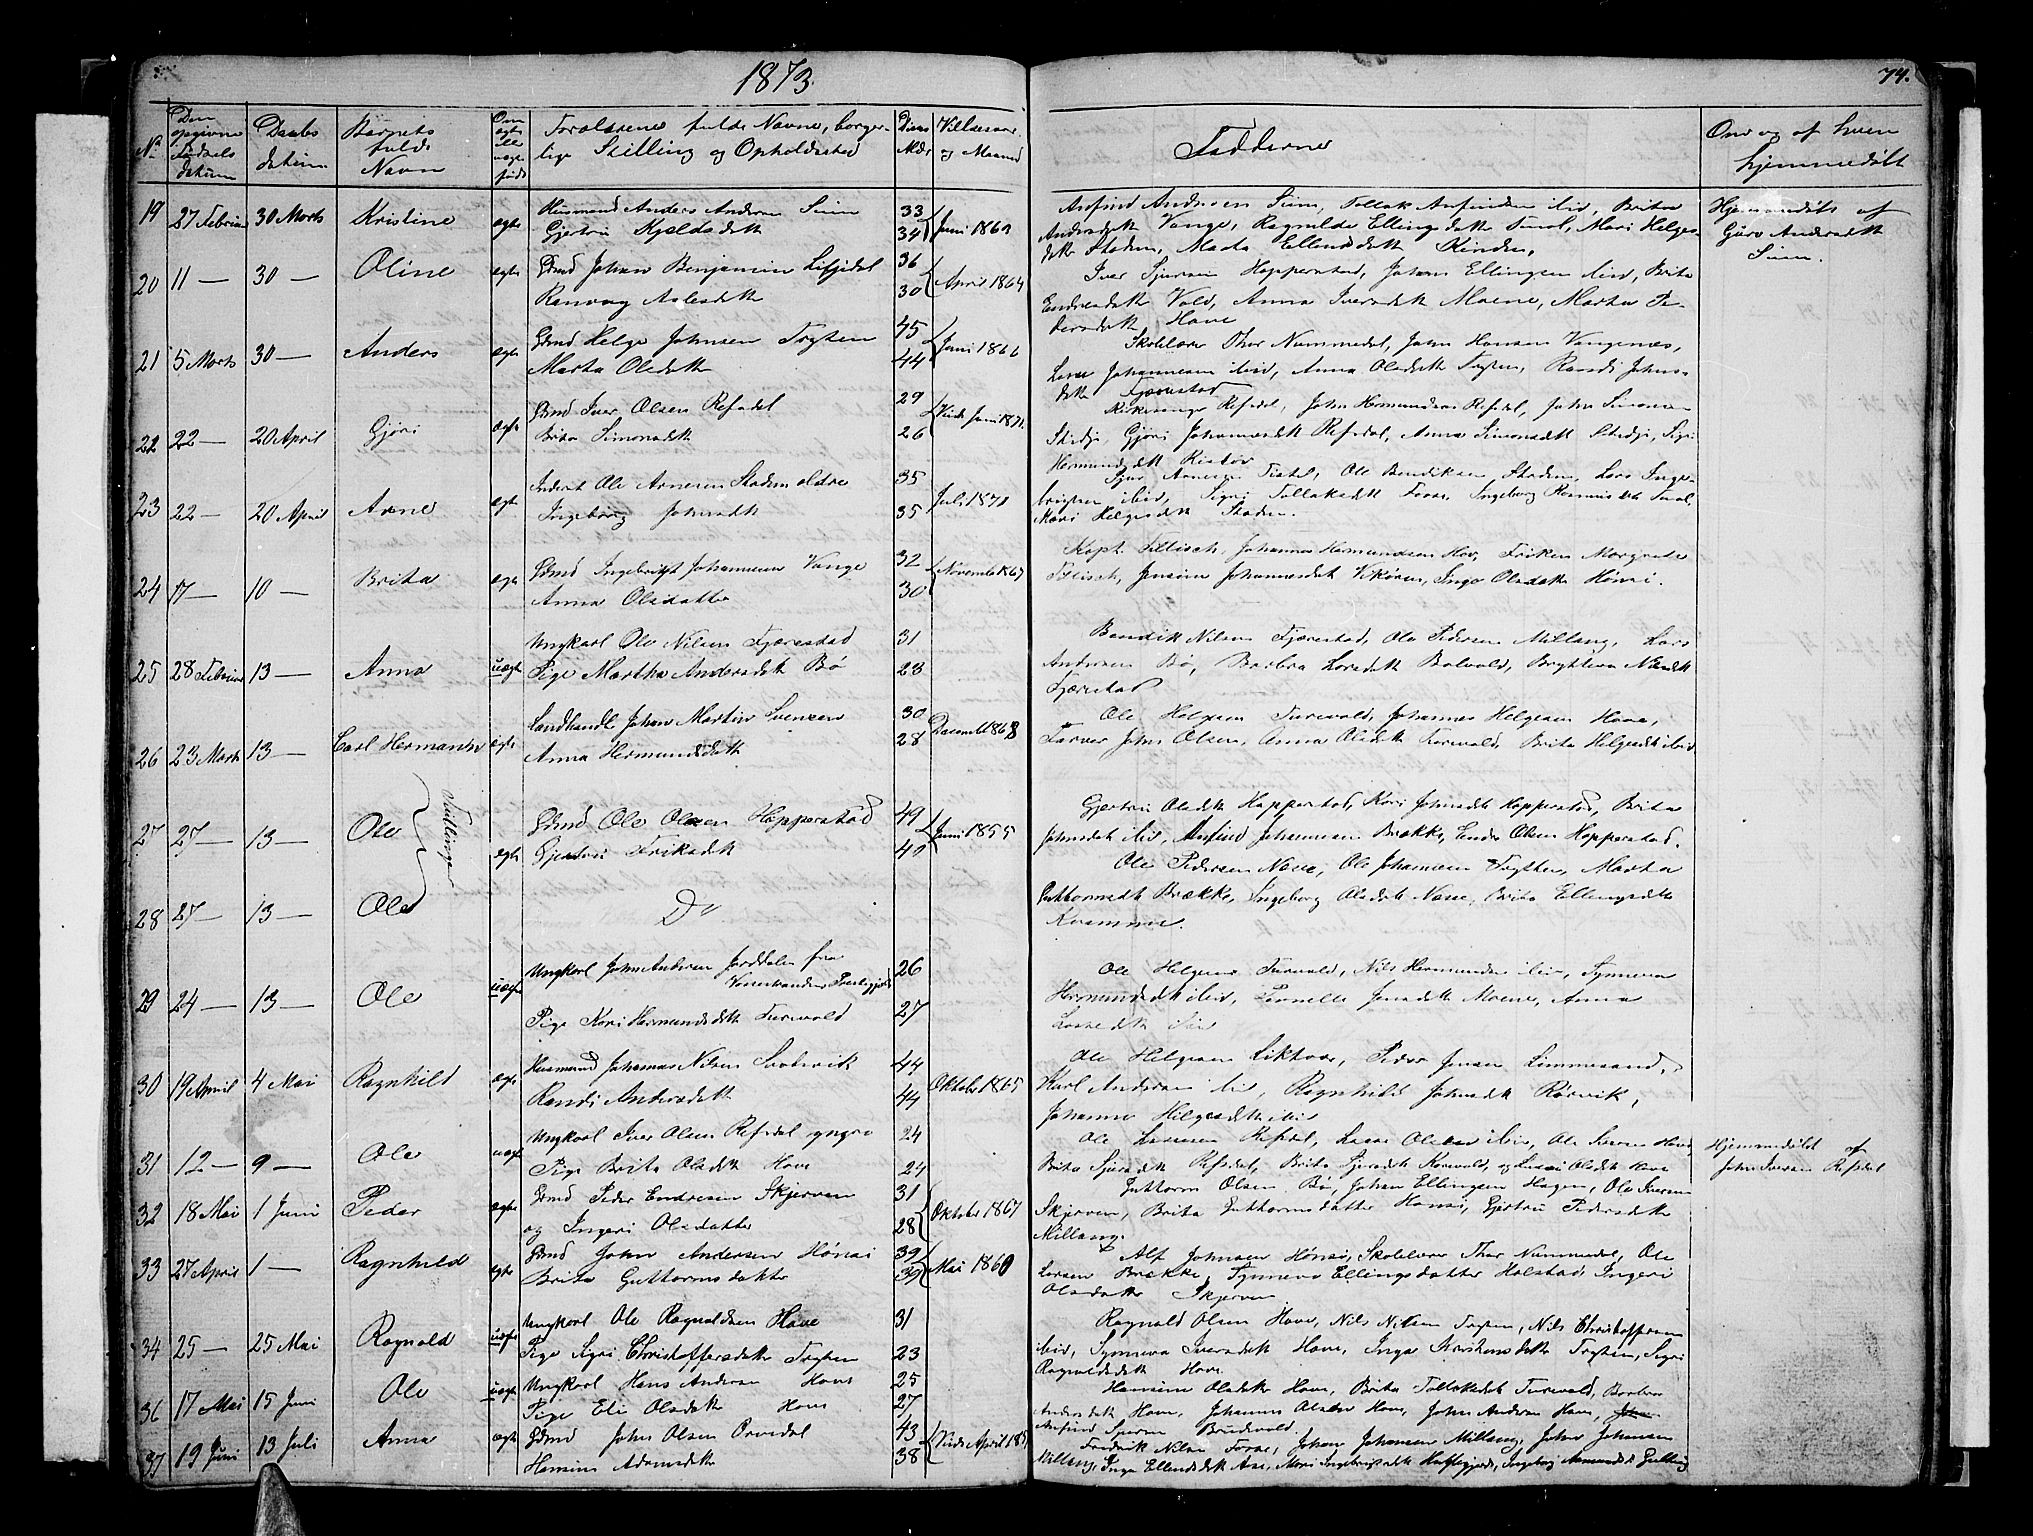 1873.
74.
No
Den opgivne Fødsels datum
Daabs datum
Barnets fulde Navn
Om ægte ell uægte født
Forældrenes fulde Navne, borgerlige Stilling og Opholdssted
Deres Alder
Vielsesaar og Maaned
Fadderne
Om og af hvem hjemmedøbt
19 27 Februar 30 Marts Kristine ægte Husmand Anders Andersen Sum 33
Gjertrui Kjeldsdatt 34 Juni 186
Anfind Andersen Sum, Tollak Anfindsen ibid, Brita
Andersdatt Vange, Ragnilda Ellingsdatt Tenol, Mari Helges-
datt Stadem, Marta Ellendsdatt Rinden,
Hjemmedøbt af
Guro Andersdatt
Sum.
20 11 — 30 — Oline ægte Gbmd Johan Benjamin Lifjedal 36
Ranvog Aslesdatt 30 April 1864
Iver Sjursen Hopperstad, Johan Ellingsen ibid, Brita
Endresdatt Vold, Anna Iversdatt Moene, Marta Pe-
dersdatt Hove
21 5 Marts 30 — Anders ægte Gbmd Helge Johnsen Tryten 45
Marta Olsdatt 44 Juni 1866
Skolelærer Thor Nummedal, John Hansen Vangsnæs,
Lasse Johannesen ibid, Anna Olsdatt Tryten, Randi Johns-
datt Fjærestad
22 22 — 20 April Gjøri ægte Gbmd Iver Olsen Refsdal 29
Brita Simonsdatt 26 Viede Juni 1871.
Kirkesanger Refsdal, John Hermundsen Refsdal, John Simonsen
Stedje, Gjøri Johannesdatt Refsdal, Anna Simonsdatt Stedje, Sigri
Hermundsdatt
23 22 — 20 April Arne ægte Inderst Ole Arnesen Stadem ældre 35
Ingeborg Johnsdatt 35 Juli 1870
Sjur Arnesen Tistel, Ole Bendiksen Stadem, Lars Inge-
brigtsen ibid, Sigri Tollaksdatt Fosse, Ingeborg Rasmusdatt Tenol
Mari Helgesdatt Stadem.
24 17 — 10 — Brita ægte Gbmd Ingebrigt Johannesen Vange 32
Anna Olsdatter 30 November 1867
Kapt. Johannes Hermundsen Hov, Friken Margrete
Jensine Johannesdatt Vikøren, Inga Olsdatter Hønsi.
25 28 Februar 13 — Anna uægte Ungkarl Ole Nilsen Fjærestad 31
Pige Martha Andersdatt Bø 23
Bendik Nilsen Fjærestad, Ole Pedersen Millang, Lars
Andersen Bø, Barbra Larsdatt Bolvold, Brytteva Nilsdatt
Fjærestad
26 23 Marts 13 — Carl Hermann ægte Landhandle Johan Martin Svensen 30
Anna Hermundsdatt 28 December 1868
Ole Helgesen Turvold, Johannes Helgesen Hove,
Farver John Olsen, Anna Olsdatt Turvold, Brita Helgesdatt ibid
27 27 — 13 — Ole ægte Gbmd Ole Olsen Hopperstad 49
Gjertrui Eriksdatt 40 Juni 1855
Tvillinger
Gjertrui Olsdatt Hopperstad, Kari Johnsdatt Hopperstad, Brita
Johnsdatt ibid, Anfind Johannesen Brække, Endre Olsen Hopperstad.
28 27 — 13 — Ole Do
Ole Pedersen Nese, Ole Johannesen Tryten, Marta
Guttormsdt Brække, Ingeborg Olsdatt Nese, Brita Ellingsdatt
Kvamme.
29 24 — 13 — Ole uægte Ungkarl John Andersen Jordalen fra
Vossestranden Præstegjeld 26
Pige Kari Hermundsdatt Turvold 27
Ole Helgesen Turvold, Nils Hermundsen ibid, Synneva
Hermundsdatt ibid, Pernille Jensdatt Moene, Anna
Lassedatt ibid
30 19 April 4 Mai Ragnhild ægte Husmand Johannes Nilsen 44
Randi Andersdatt 44 Oktober 1865
Ole Helgesen Peder Jensen Limmesand,
Karl Andersen ibid, Ragnhild Johnsdatt Rørvik,
Johanne Helgesdatt ibid
31 12 — 9 — Ole uægte Ungkarl Iver Olsen Refsdal yngre 24
Pige Brita Olsdatt Hove 24
Ole Lassesen Refsdal, Lasse Olsen ibid, Ole Iversen Hove,
Brita Sjursdatt Refsdal, Brita Sjursdatt Olsdatt Hove
Hjemmedøbt af
John Iversen Refsdal
32 18 Mai 1 Juni Peder ægte Gbmd Peder Endresen Skjerven 31
og Ingeri Olsdatter 28 Oktober 1867
Guttorm Olsen Bø, Johan Ellingsen Hagen, Ole Iversen
Skjerven, Brita Guttormsdatter Hønsi, Gjertrui Pedersdatt
Millang.
33 27 April 1 — Ragnhild ægte Gbmd John Andersen Hønsi 39
Brita Guttormsdatter 39 Mai 1860
Alf Johnsen Hønsi, Skolelærer Thor Nummedal, Ole
Larsen Brække, Synneva Ellingsdatter Holstad, Ingeri
Olsdatter Skjerven
34 25 — 25 Mai Ragnald uægte Ungkarl Ole Ragnaldsen Hove 31
Pige Sigri Christoffersdatt Tryten 23
Ragnald Olsen Hove, Nils Nilsen Tryten, Nils Christoffersen
ibid, Synneva Iversdatt Hove, Inga Kristensdatt Tryten, Sigri
Ragnaldsdatt Hove
36 17 Mai 15 Juni Ole uægte Ungkarl Hans Andersen Hove 25
Pige Eli Olsdatt Hove 27
Hansine Olsdatter Hove, Brita Tollaksdat Turvold, Barbra
Andersdatt Hove, Johannes Olsen Hove, John Andersen Hove,
Anfind Sjursen
37 19 Juni 13 Juli Anna ægte Gbmd John Olsen Orvedal 43
Hansine Adamsdatt 38 Viede April 18
Fredrik Nilsen Fosse, Johan Johansen Millang, John Johansen
Millang, Inga Ellendsdatt Ase, Mari Ingebrigtsdatt